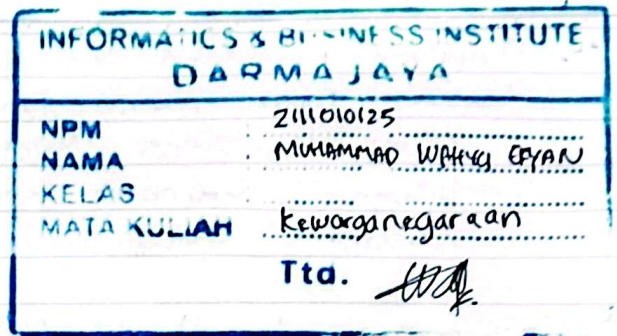 INFORMATICS & BUSINESS INSTITUTE
DARMAJAYA
NPM : 2111010125
NAMA : MUHAMMAD WAHYU EFYAN
KELAS :
MATA KULIAH : Kewarganegaraan
Ttd.